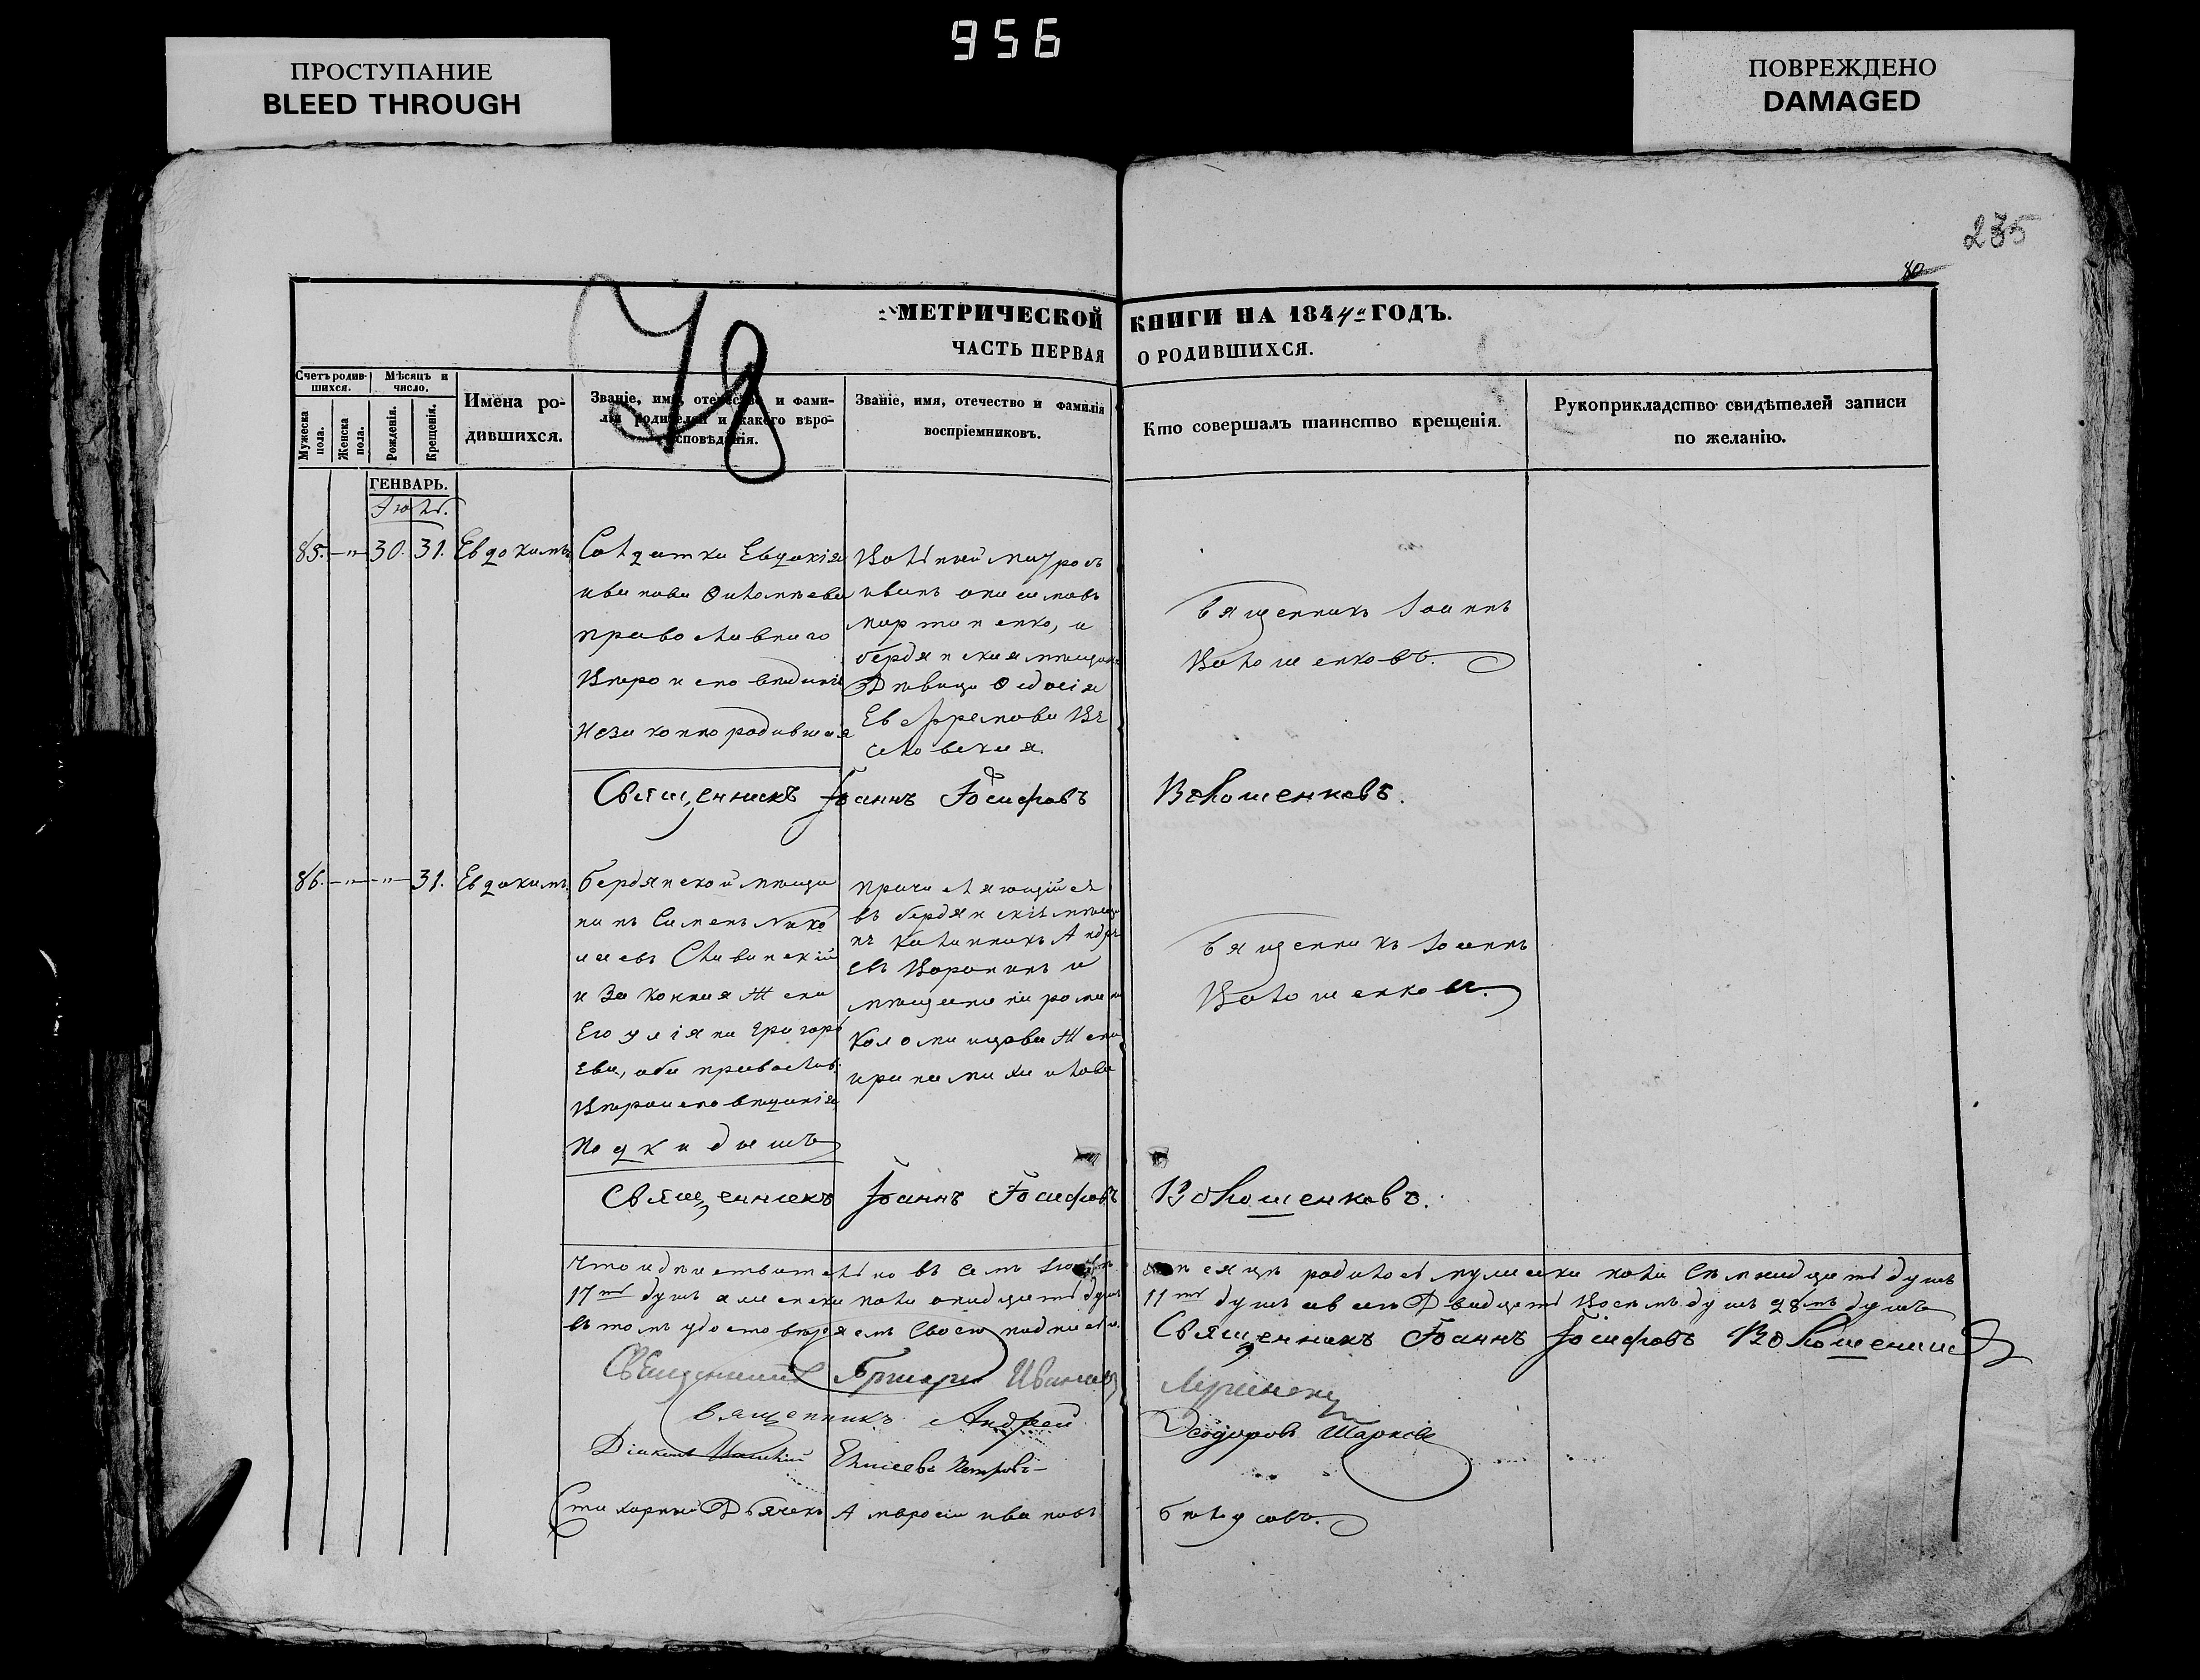 956
ПРОСТУПАНИЕ
BLEED THROUGH
ПОВРЕЖДЕНО
DAMAGED
235
80
78
МЕТРИЧЕСКОЙ КНИГИ НА 1844 ГОДЪ.
ЧАСТЬ ПЕРВАЯ О РОДИВШИХСЯ.
Счетъ родив-
шихся.
Мужеска пола.
Женска пола.
Мѣсяцъ и
число.
Рожденія.
Крещенія.
Имена ро-
дившихся.
Званіе, имя, отечество и фами-
лія родителей и какого вѣро-
исповѣданія.
Званіе, имя, отечество и фамилія
воспріемниковъ.
Кто совершалъ таинство крещенія.
Рукоприкладство свидѣтелей записи
по желанію.
ГЕНВАРЬ.
Іюль.
85. 30. 31. Евдокимъ
Солдатка Евдокія
иванова
православнаго
Вѣроисповѣданія
Незаконнородившая
Вольный матросъ
иванъ онисимовъ
мартиненко, и
бердянская мѣщанка
Дѣвица Феодосія
Евфремова
Священникъ Іоаннъ
Волошенковъ.
Священникъ Іоаннъ Іосифовъ Волошенковъ.
86. 31. Евдокимъ
бердянской мѣща
нинъ Симеонъ Нико
лаевъ Сливинскій
и Законная Жена
Его уліяна григорь
ева, оба православ.
Вѣроисповѣданія
подкидышъ
причисляющійся
въ бердянскіе мѣща
не Калинникъ Андре
евъ Воронинъ и
мѣщанина романа
Коломийцова Жена
ирина михаилова
Священникъ Іоаннъ
Волошенковъ.
Священникъ Іоаннъ Іосифовъ Волошенковъ.
Что дѣйствительно въ семъ Іюлѣ мѣсяцѣ родилось мужеска пола Семнадцать душъ
17ть душъ а женска пола одинадцать душъ 11ть душъ а всего Двадцать Восемь душъ 28мь душъ
въ томъ удостовѣряемъ Своею подписью. Священникъ Іоаннъ Іосифовъ Волошенковъ
Священникъ Григорій Ивановъ
Священникъ Андрей Феодоровъ
Діаконъ Елисеевъ Петровъ
Стихарный Дьячекъ Амвросій ивановъ бѣлоусовъ.